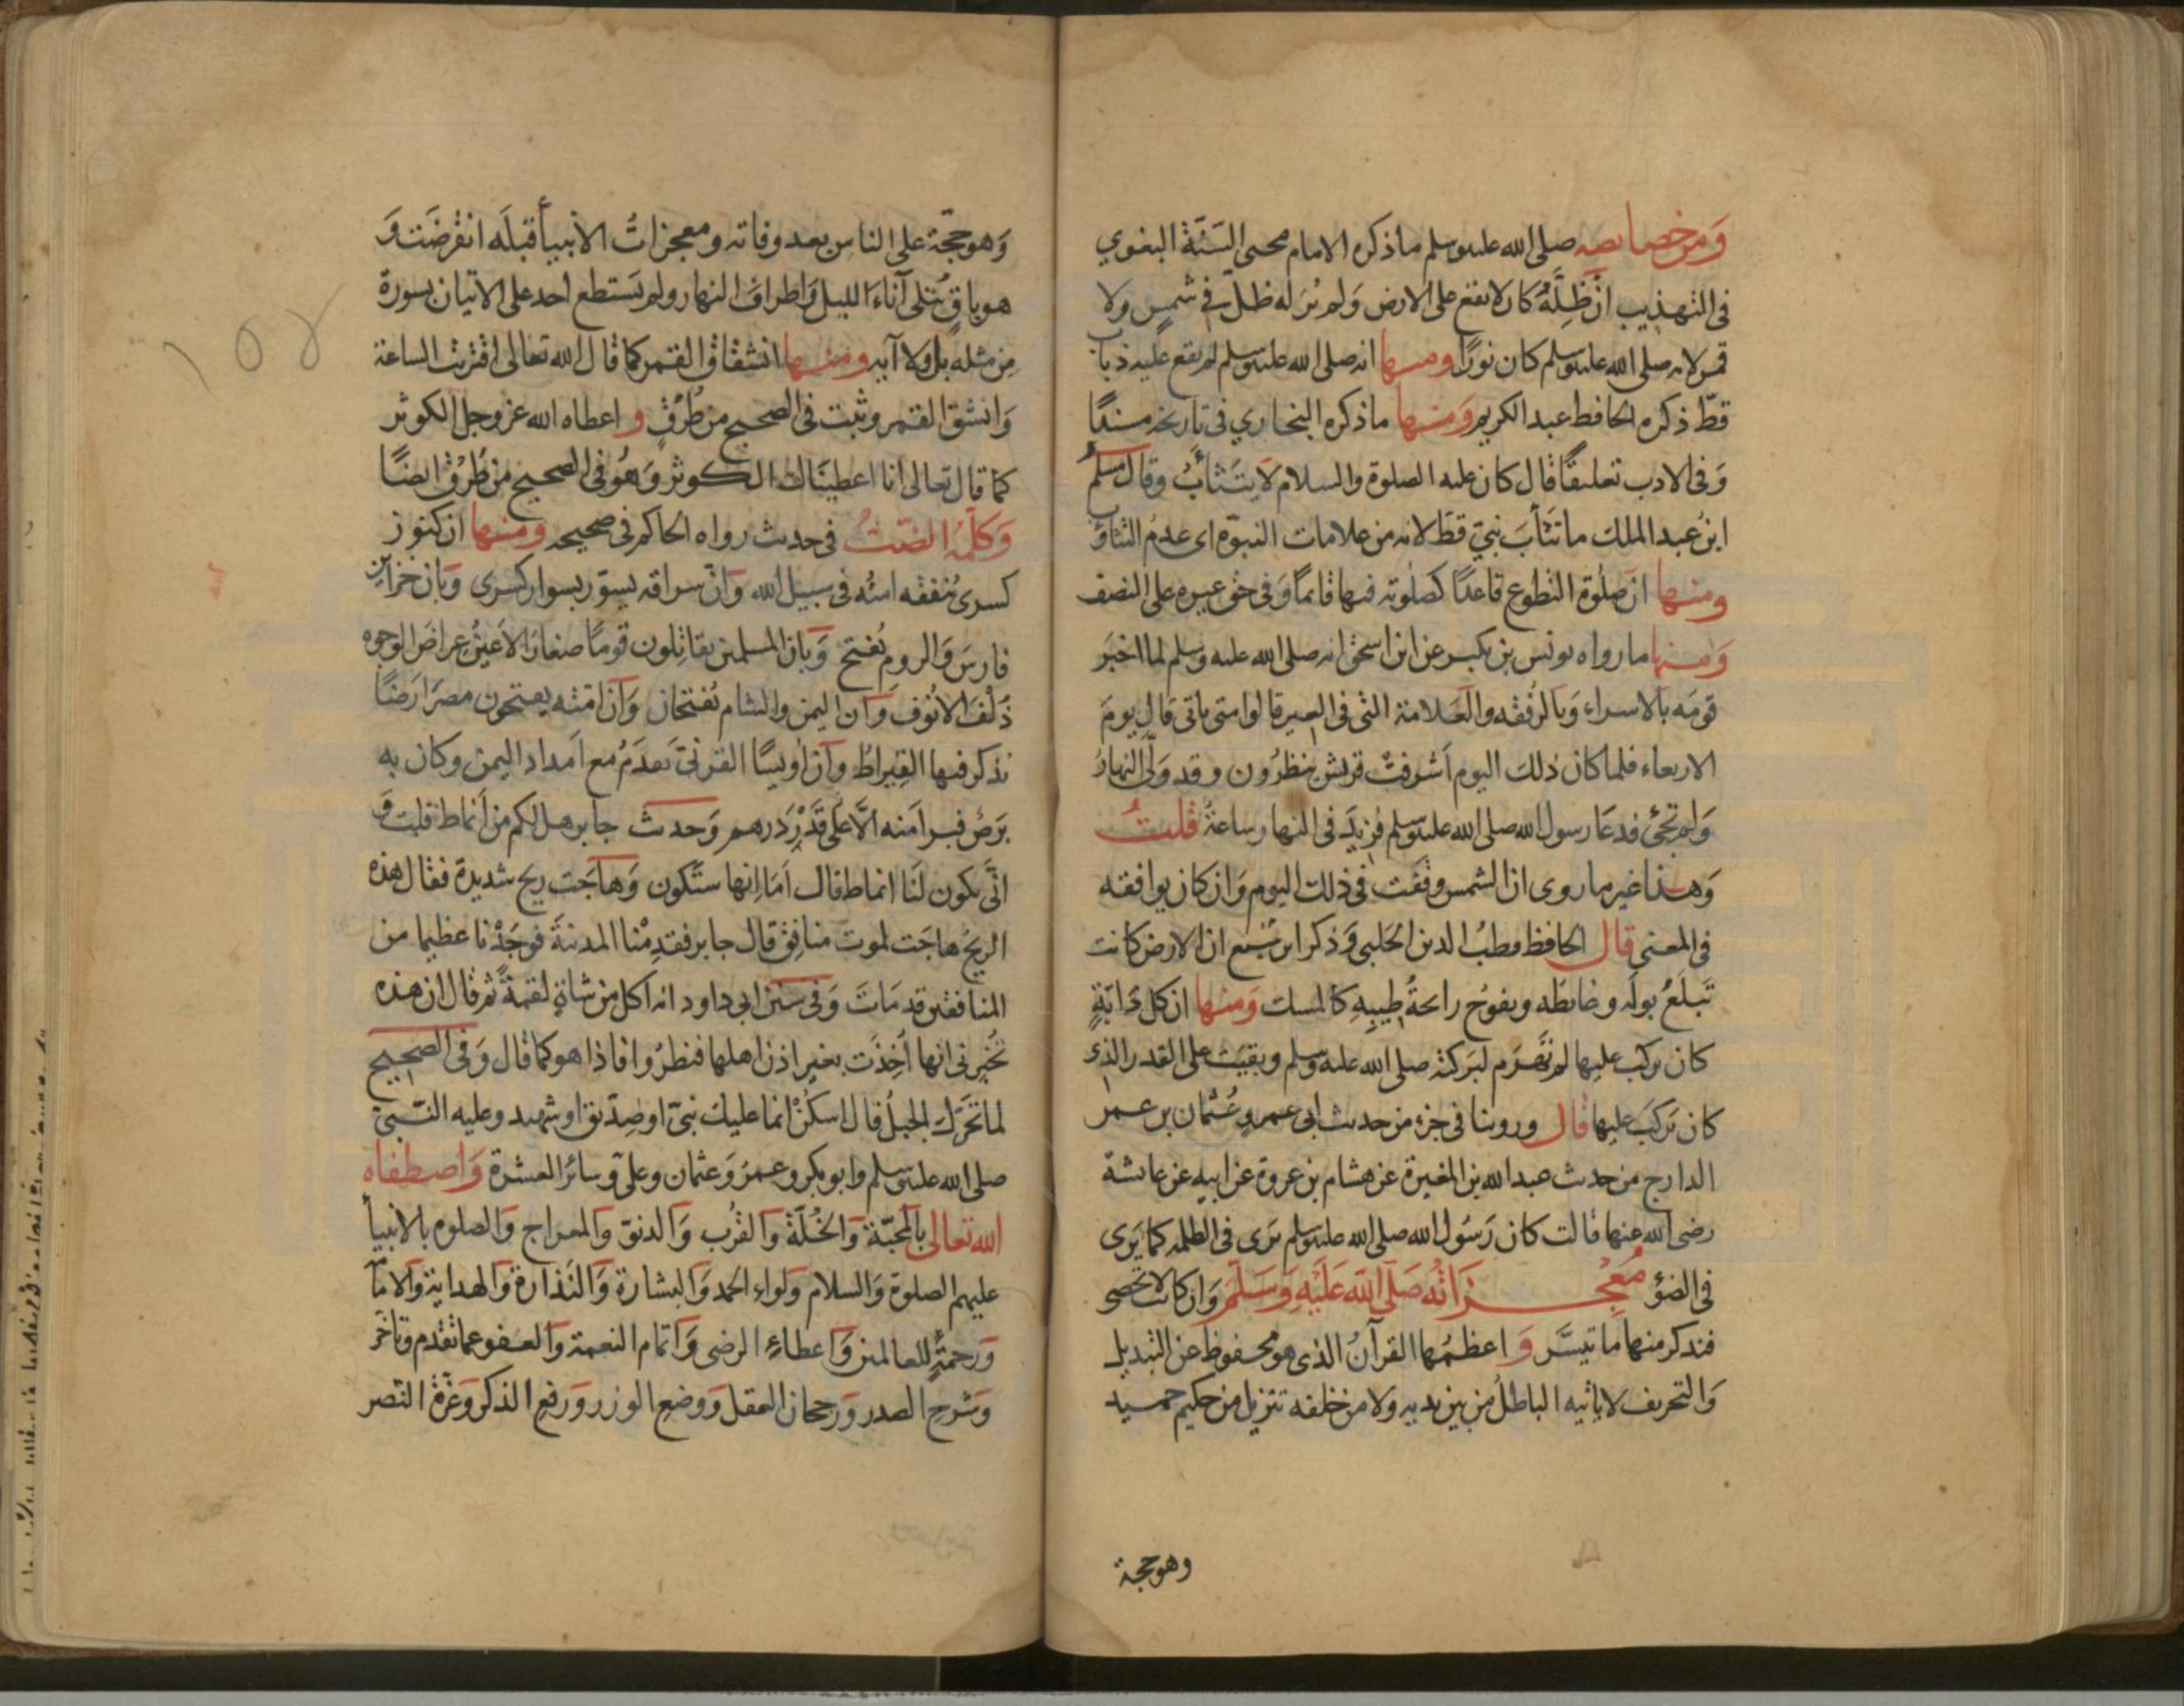 وَمن خصائصه صلى الله عليه وسلم ما ذكره الامام محيى السّنّة البغوي
فى التهذيب انّ ظِلَّهُ كان لا يقع على الارض وَلم يُرَ له ظلّ فى شمسٍ ولا
قمر لانه صلى الله عليه وسلم كان نورًا ومنها انه صلى الله عليه وسلم لم يقع عليه ذباب
قطّ ذكره الحافظ عبد الكريم وَمنها ما ذكره البخاري فى تاريخه مسندًا
وَفى الادب تعليقًا قال كان عليه الصلوة والسلام لا يتَثاأبُ وقال مسلم
ابنُ عبد الملك ما تثأبَ نبيّ قط لانه من علامات النبوّة اى عدمُ التثاؤب
ومنها ان صلٰوة التطوع قاعدًا كصلٰوته فيها قائمًا وَفى حق غيره على النصف
وَمنها ما رواه يونس بن بكير عن ابن اسحق انه صلى الله عليه وسلم لما اخبَر
قومَه بالاسراء وَبالرُفقه والعَلامة التى فى العير قالوا متى ياتى قال يومَ
الاربعاء فلما كان ذلك اليوم اَشرفتْ قريش ينظرُون وقد وَلّى النهارُ
وَلم تجئ فدعَا رسول الله صلى الله عليه وسلم فزِيدَ فى النهار ساعةُ قلتُ
وَهذا غير ما روى ان الشمس وقفَت فى ذلك اليوم وَان كان يوافقه
فى المعنى قال الحافظ قطبُ الدين الحلبى وَذكر ابن سبع ان الارض كانت
تَبلَعُ بولَه وغائطَه ويفوحُ رائحةُ طِيبِهِ كالمسك وَمنها ان كل دَابّةٍ
كان يركب عليها لم تَهرَم لبَركته صلى الله عليه وسلم وبقيَت على القدر الذى
كان يَركَب عليها قال وروينا فى جزء من حديث ابى عمروٍ عُثمان بن عمر
الدارج من حديث عبد الله بن المغيرة عن هشام بن عروة عن ابيه عن عائشة
رضى الله عنها قالت كان رَسُول الله صلى الله عليه وسلم يَرى فى الظلمه كما يَرى
فى الضؤ مُعْجِزَاتُه صَلّى الله عَلَيْهِ وَسَلّم وَان كانت لا تحصى
فنذكر منها ما تيسَّر وَاعظمُها القرآنُ الذى هو محفوظ عن التبديل
وَالتحريف لا ياتيه الباطلُ من بين يديه ولا من خلفه تنزيل من حكيم حميد
وهو حجة
وَهو حجّة على الناس بعد وفاته ومعجزاتُ الانبيأ قبلَه انقرضَت وَ
هو باقٍ يُتلى آناءَ الليل وَاطرافَ النهار ولم يَستطع احد على الاتيان بسورة
مِن مثله بل ولا آيه ومنها انشقاق القمر كما قال الله تعالى اقتربت الساعة
وَانشق القمر وثبت فى الصحيح من طُرُقٍ و اعطاه الله عز وجل الكوثر
كما قال تعالى انا اعطينَاك الكوثر وَهُو فى الصحيح من طُرُق ايضًا
وَكلّمهُ الضّبُ فى حديث رواه الحاكم فى صحيحه ومنها ان كنوز
كسرى يُنفقه امتُه فى سبيل الله وَانّ سراقه يسوّر بسوار كسرى وَبان خزآين
فارسَ وَالروم تُفتح وَبان المسلمين يقاتِلون قومًا صغارَ الاَعينُ عراضَ الوجوه
ذُلفَ الانُوف وَان اليمن والشام تُفتحان وَان امّته يفتحون مصرَ ارَضًا
يذكر فيها القِيراطُ وَان اُويسًا القرنىّ يَقدَمُ مع اَمداد اليمن وكان به
بَرَصٌ فبرا منه الّا على قَدْرِ دَرهم وَحدث جابر هل لكم من اَنماط قلت وَ
انّى يكون لَنَا انماط قال اَمَا اِنها ستَكون وَهاجَت ريح شديدة فقال هذه
الريحُ هاجَت لموت منافِق قال جابر فقدِمْنا المدينة فوجَدْنا عظيما من
المنافقين قد مَاتَ وَفى سنن ابى داود انه اكل من شاةٍ لقمةً ثم قال ان هذه
تُخبِرنى انها اُخِذَت بغير اذن اهلها فنظرُوا فاذا هو كما قال وَفى الصحيح
لما تحَرّك الجبلُ قال اسكنْ انما عليك نبىّ او صِدّيق او شهيد وعليه النبىّ
صلى الله عليه وسلم وابو بكر وعمرُ وَعثمان وعلى وَسائر العشرة وَاصطفاه
الله تعالى بالمحبّة وَالخُلّة وَالقُرُب وَالدنوّ وَالمعراج وَالصلوه بالانبيأ
عليهم الصلوة وَالسلام وَلواءِ الحمد وَالبشارة وَالنَذارة وَالهداية وَالامآ
وَرحمةٍ للعالمين وَاعطاءِ الرضى وَاتمام النعمة وَالعفو عما تقدم وتاخّر
وَشرحِ الصدر وَرجحان العقل وَوضعِ الوزر وَرفعِ الذكر وَعزّة النّصر